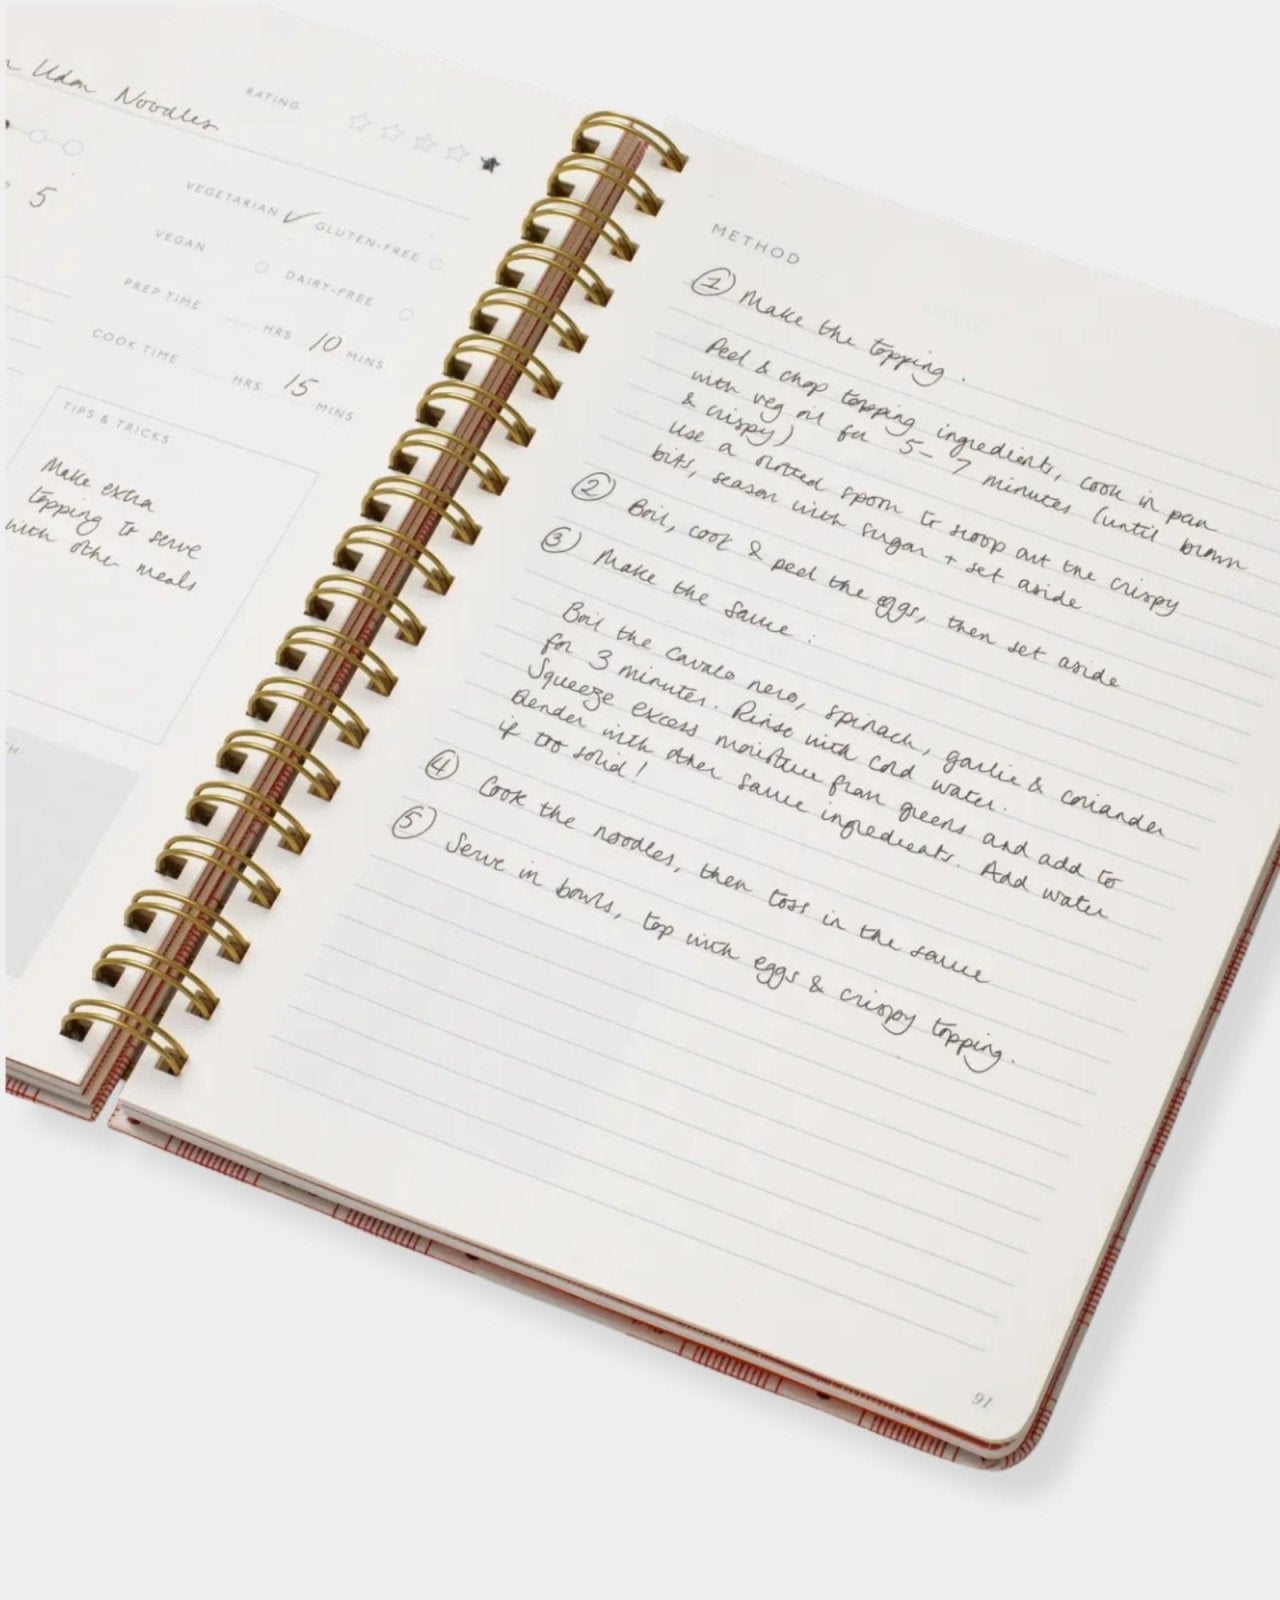 Udon Noodles
RATING
5
VEGETARIAN ✓ GLUTEN-FREE
VEGAN DAIRY-FREE
PREP TIME HRS 10 MINS
COOK TIME HRS 15 MINS
TIPS & TRICKS
Make extra
topping to serve
with other meals
METHOD
① Make the topping.
Peel & chop topping ingredients, cook in pan
with veg oil for 5-7 minutes (until brown
& crispy)
Use a slotted spoon to scoop out the crispy
bits, season with sugar + set aside
② Boil, cook & peel the eggs, then set aside
③ Make the sauce:
Boil the cavalo nero, spinach, garlic & coriander
for 3 minutes. Rinse with cold water.
Squeeze excess moisture from greens and add to
blender with other sauce ingredients. Add water
if too solid!
④ Cook the noodles, then toss in the sauce
⑤ Serve in bowls, top with eggs & crispy topping.
91